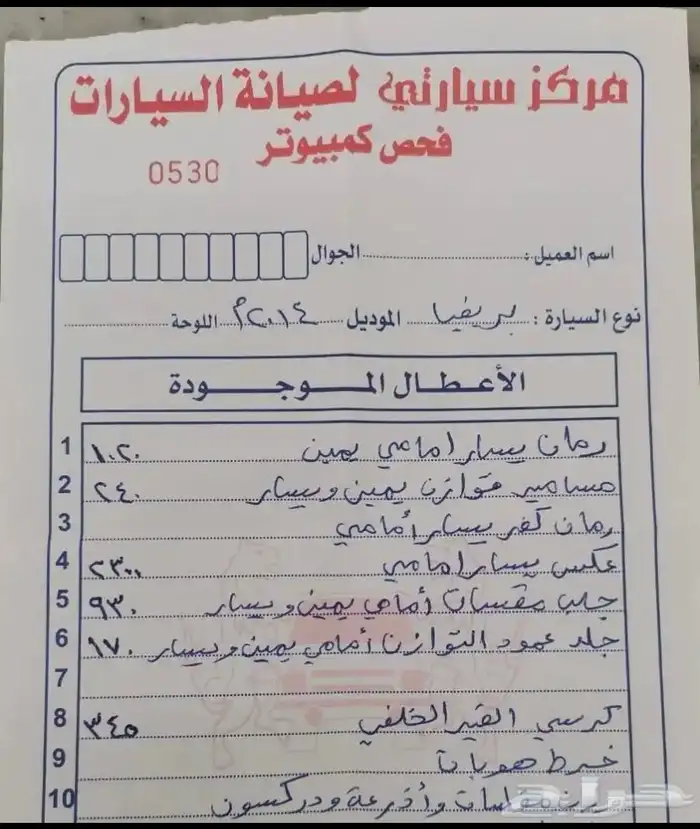 مركز سيارتي لصيانة السيارات
فحص كمبيوتر
0530
اسم العميل : الجوال
نوع السيارة : بريفيا الموديل ٢٠١٤م اللوحة
الأعطال الموجودة
1 رمان يسار امامي يمين ١٠٢٠
2 مسامير توازن يمين ويسار ٢٤٠
3 رمان كفر يسار أمامي
4 عكس يسار امامي ٢٣٠٠
5 جلب مقصات أمامي يمين ويسار ٩٣٠
6 جلد عمود التوازن أمامي يمين ويسار ١٧٠
7
8 كرسي القير الخلفي ٣٤٥
9 خرط هوبات
10 وزن مقصات وأذرعة ودركسون
حراج